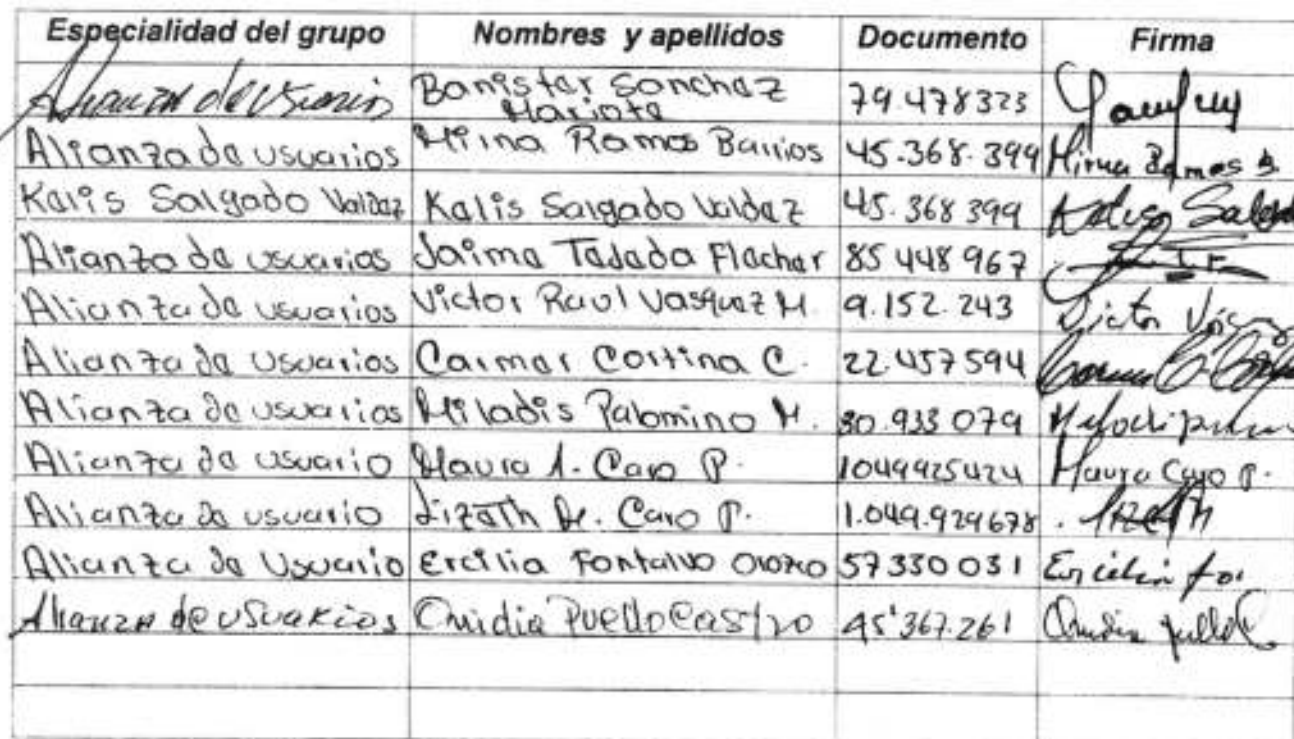 Especialidad del grupo Nombres y apellidos Documento Firma
Alianza de usuarios Banister Sanchez Mariota 79.478323
Alianza de usuarios Mirna Ramos Barrios 45.368.399 Mirna Ramos B.
Kalis Salgado Valdez Kalis Salgado Valdez 45.368 399 Salgado
Alianza de usuarios Jaime Tadada Flacher 85 448 967
Alianza de usuarios Victor Raul Vasquez M. 9.152.243 Victor Vas
Alianza de usuarios Carmar Cortina C. 22.457594
Alianza de usuarios Miladis Palomino M. 30.933 079
Alianza de usuario Maura A. Caro P. 1049925424 Maura Caro P.
Alianza de usuario Lizath M. Caro P. 1.049.929678
Alianza de Usuario Ercilia Fontalvo Orozco 57330031 Ercilia fo
Alianza de usuarios Onidia Puello Castro 45'367.261 Onidia puello C